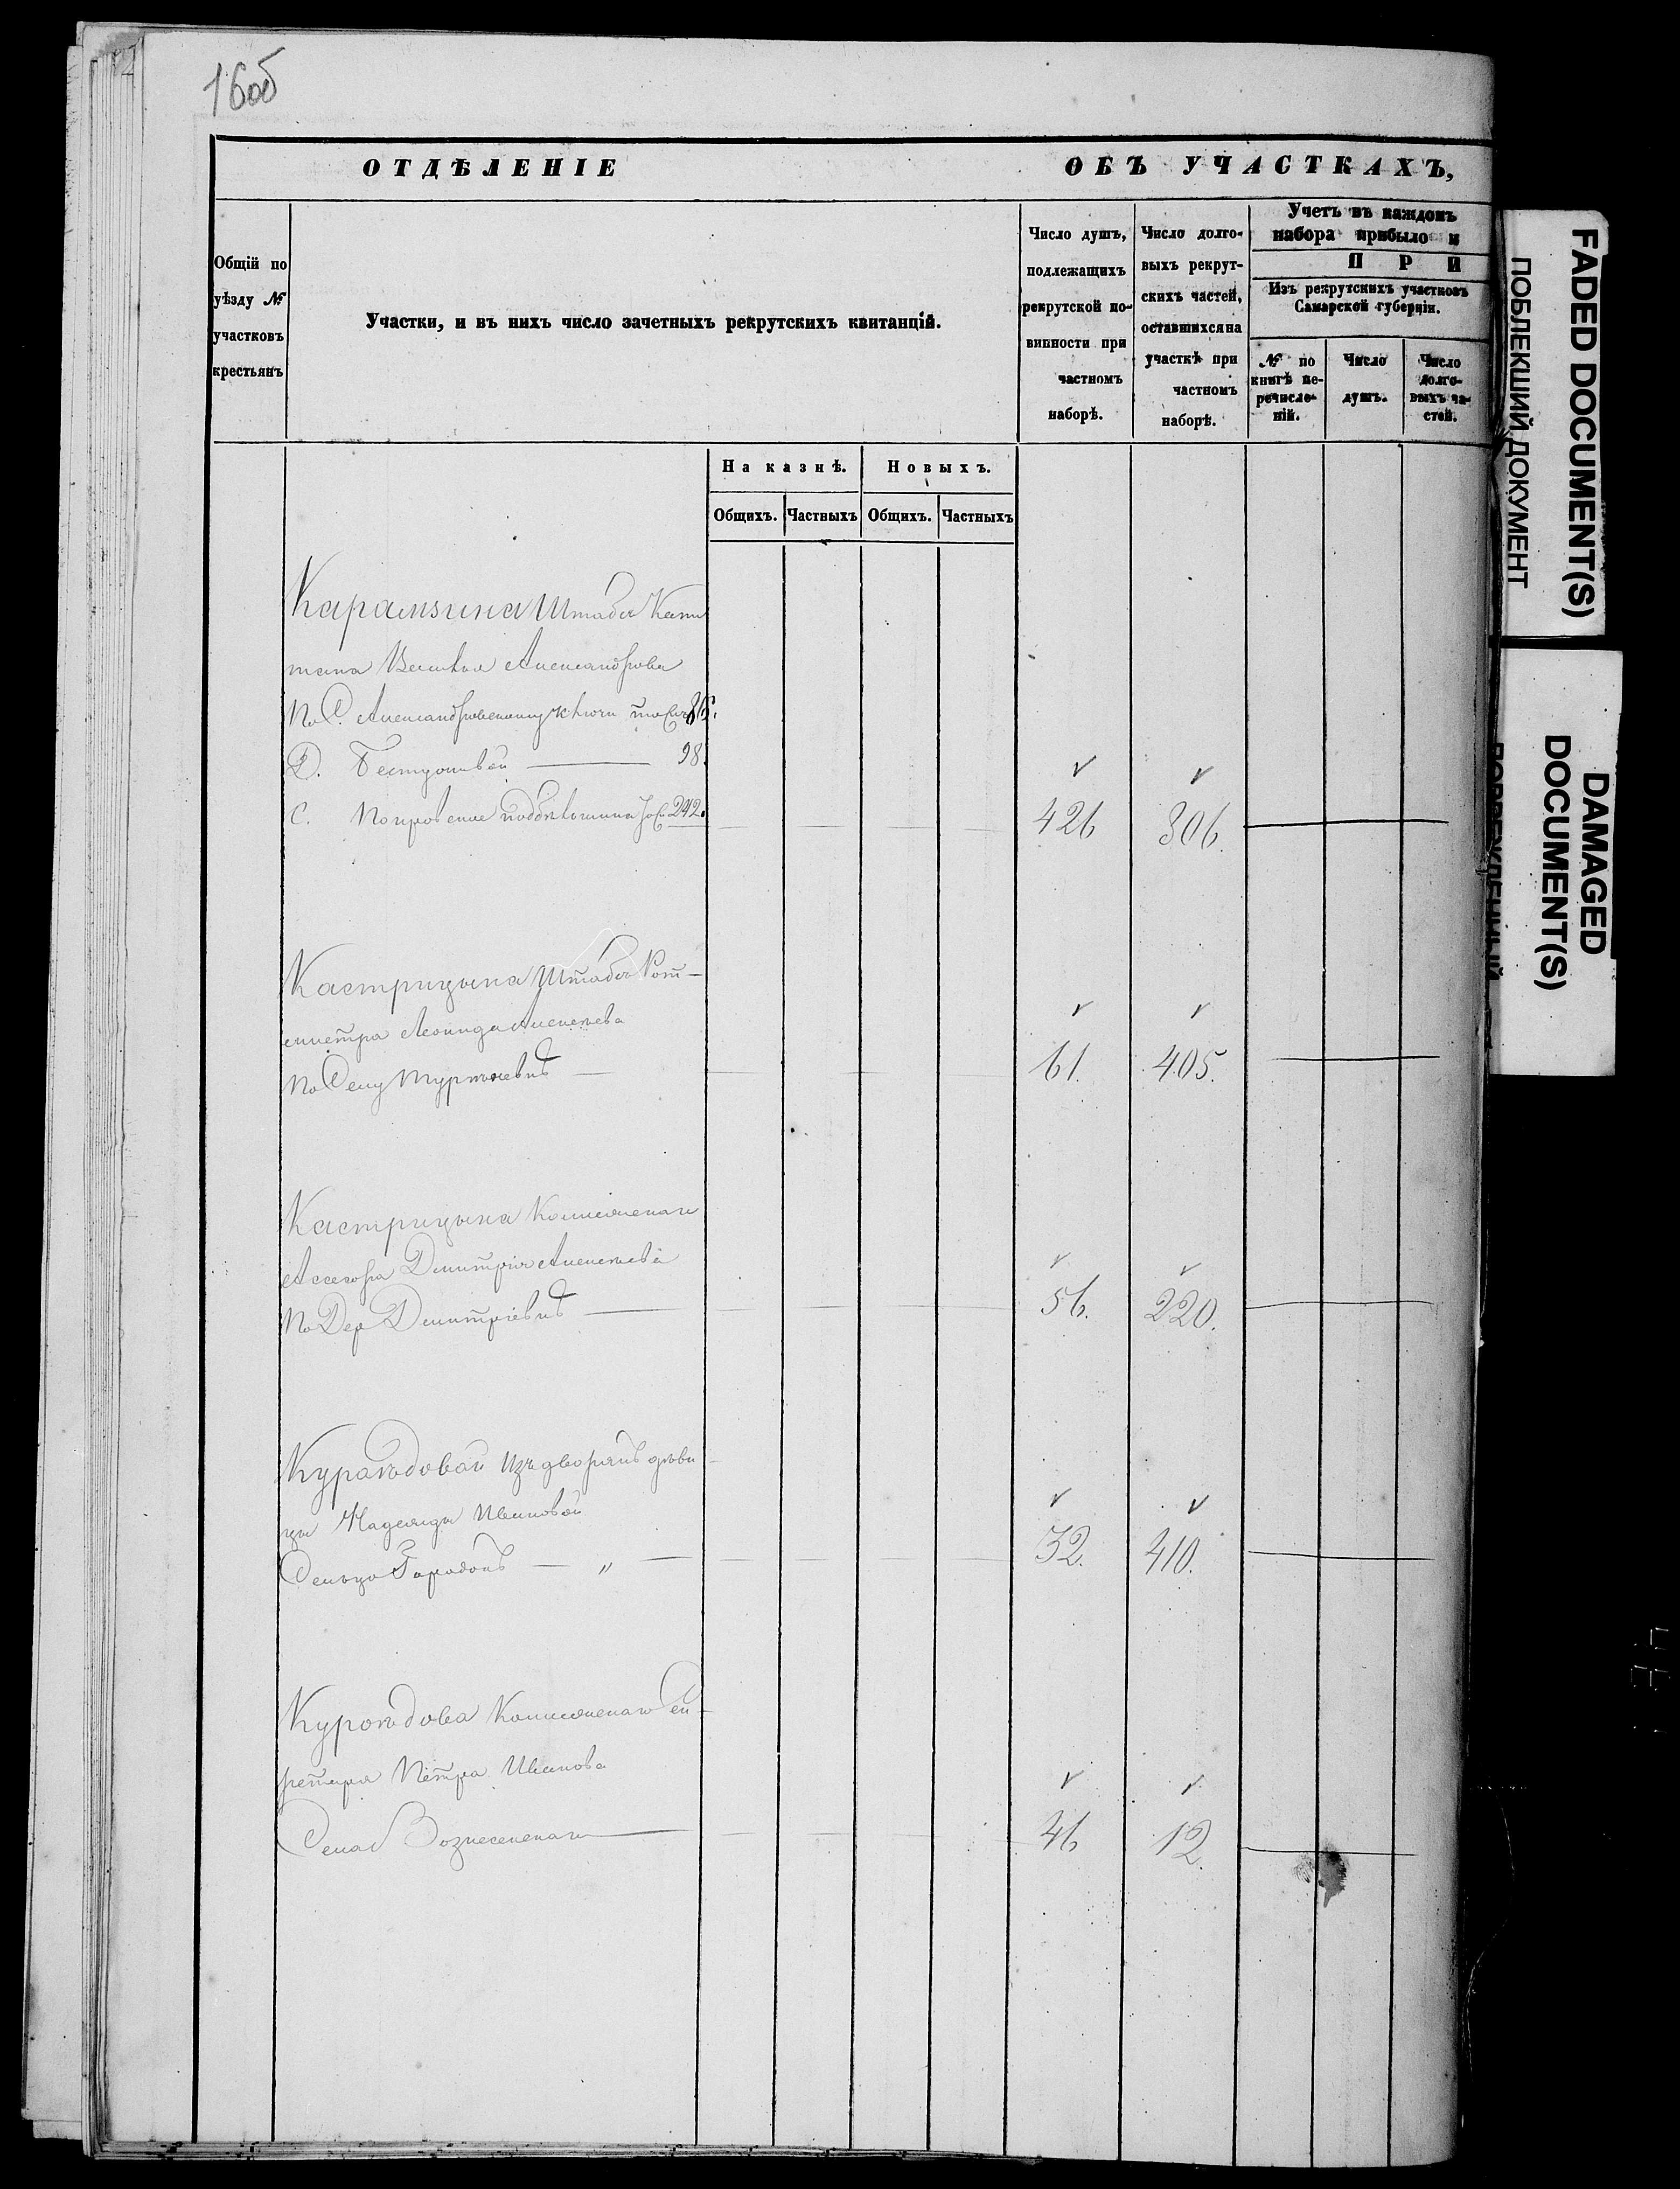 16об
ОТДѢЛЕНІЕ ОБЪ УЧАСТКАХЪ,
Общій по уѣзду № участковъ крестьянъ
Участки, и въ нихъ число зачетныхъ рекрутскихъ квитанцій.
Число душъ,
подлежащихъ
рекрутской по-
винности при
частномъ
наборѣ.
Число долго-
выхъ рекрут-
скихъ частей,
оставшихся на
участкѣ при
частномъ
наборѣ.
Учетъ въ каждомъ
набора прибыло и
П Р И
Изъ рекрутскихъ участковъ
Самарской губерніи.
№ по
книгѣ пе-
речисле-
ній.
Число
душъ.
Число
долго-
выхъ ча-
стей.
На казнѣ. Новыхъ.
Общихъ. Частныхъ Общихъ. Частныхъ
Карамзина Штабсъ Капи
тана Александрова
По С. Александровскому ключи
Д. Бестужевой 98.
С. Покровское 242. 426 306.
Кастрицына Штабсъ Рот-
мистра Леонида Алексѣева
По Селу 61. 405.
Кастрицына Коллежскаго
Ассесора Дмитрія Алексѣева
По Дер Дмитріевкѣ 56. 220.
Куроѣдовой Изъ дворянъ дѣви
цы Надежды Ивановой
Сельцо Городокъ — „ — 32. 410.
Куроѣдова Коллежскаго Сек-
ретаря Петра Иванова
Села Вознесенскаго 46 12.
FADED DOCUMENT(S)
ПОБЛЕКШИЙ ДОКУМЕНТ
DAMAGED
DOCUMENT(S)